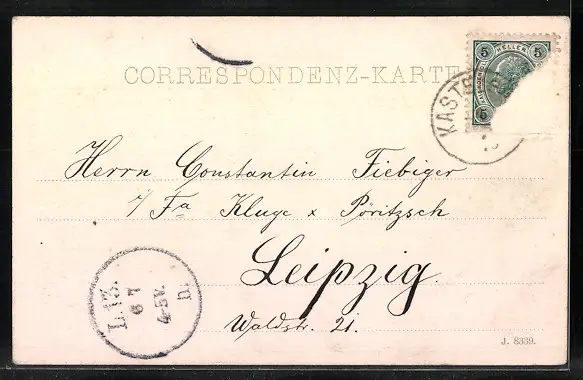 CORRESPONDENZ-KARTE
5 HELLER 5
5
KAST
Herrn Constantin Fiebiger
i/ Fa Kluge & Pöritzsch
Leipzig.
Waldstr. 21.
L. 13.
6 7
4-5V.
J. 8339.